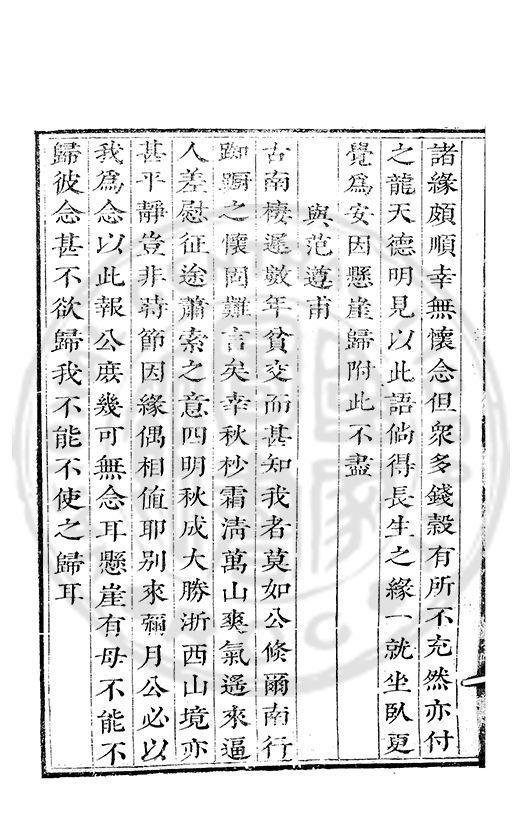 諸緣頗順幸無懷念但衆多錢穀有所不充然亦付
之龍天德明見以此語倘得長生之緣一就坐臥更
覺爲安因懸崖歸附此不盡
與范遵甫
古南棲遲數年貧交而甚知我者莫如公倏爾南行
踟躕之懷固難言矣幸秋杪霜淸萬山爽氣遙來逼
人差慰征途蕭索之意四明秋成大勝浙西山境亦
甚平靜豈非時節因緣偶相值耶別來彌月公必以
我爲念以此報公庶幾可無念耳懸崖有母不能不
歸彼念甚不欲歸我不能不使之歸耳